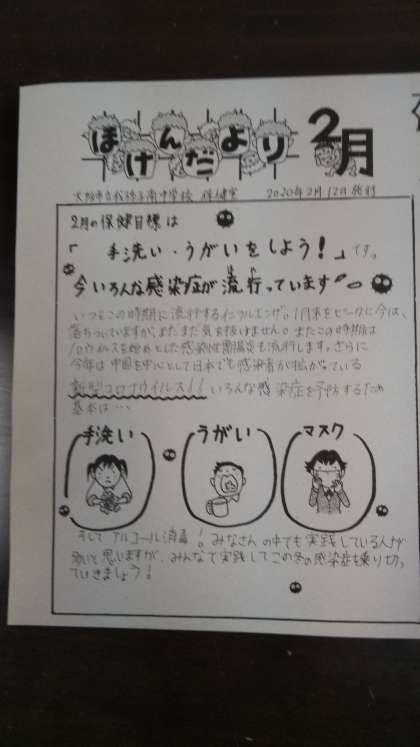 ほけんだより 2月
大阪市立我孫子南中学校 保健室 2020年2月12日発行
2月の保健目標は
「 手洗い・うがいをしよう!」です。
今いろんな感染症が流行っています
いつもこの時期に流行するインフルエンザ。1月末をピークに今は、
落ちついていますが、まだまだ気を抜けません。またこの時期は
ノロウイルスを始めとした感染性胃腸炎も流行します。さらに
今年は中国を中心として日本でも感染者が拡がっている
新型コロナウイルス!!いろんな感染症を予防するため
基本は…
手洗い うがい マスク
そしてアルコール消毒!。みなさんの中でも実践している人が
多いと思いますが、みんなで実践してこの冬の感染症を乗り切っ
ていきましょう!